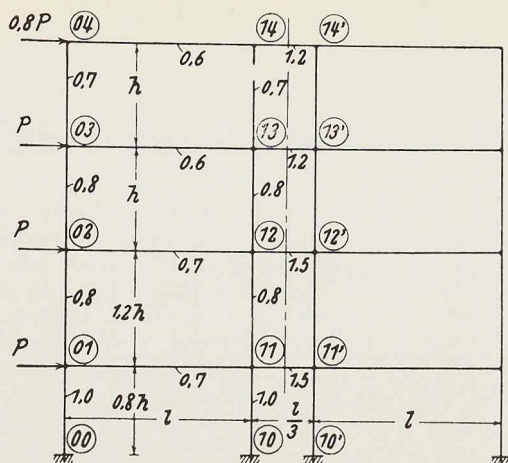 0,8P 04 14 14'
0,6 1,2
0,7 h 0,7
P 03 13 13'
0,6 1,2
0,8 h 0,8
P 02 12 12'
0,7 1,5
0,8 1,2h 0,8
P 01 11 11'
0,7 1,5
1,0 0,8h 1,0
l l/3 l
00 10 10'